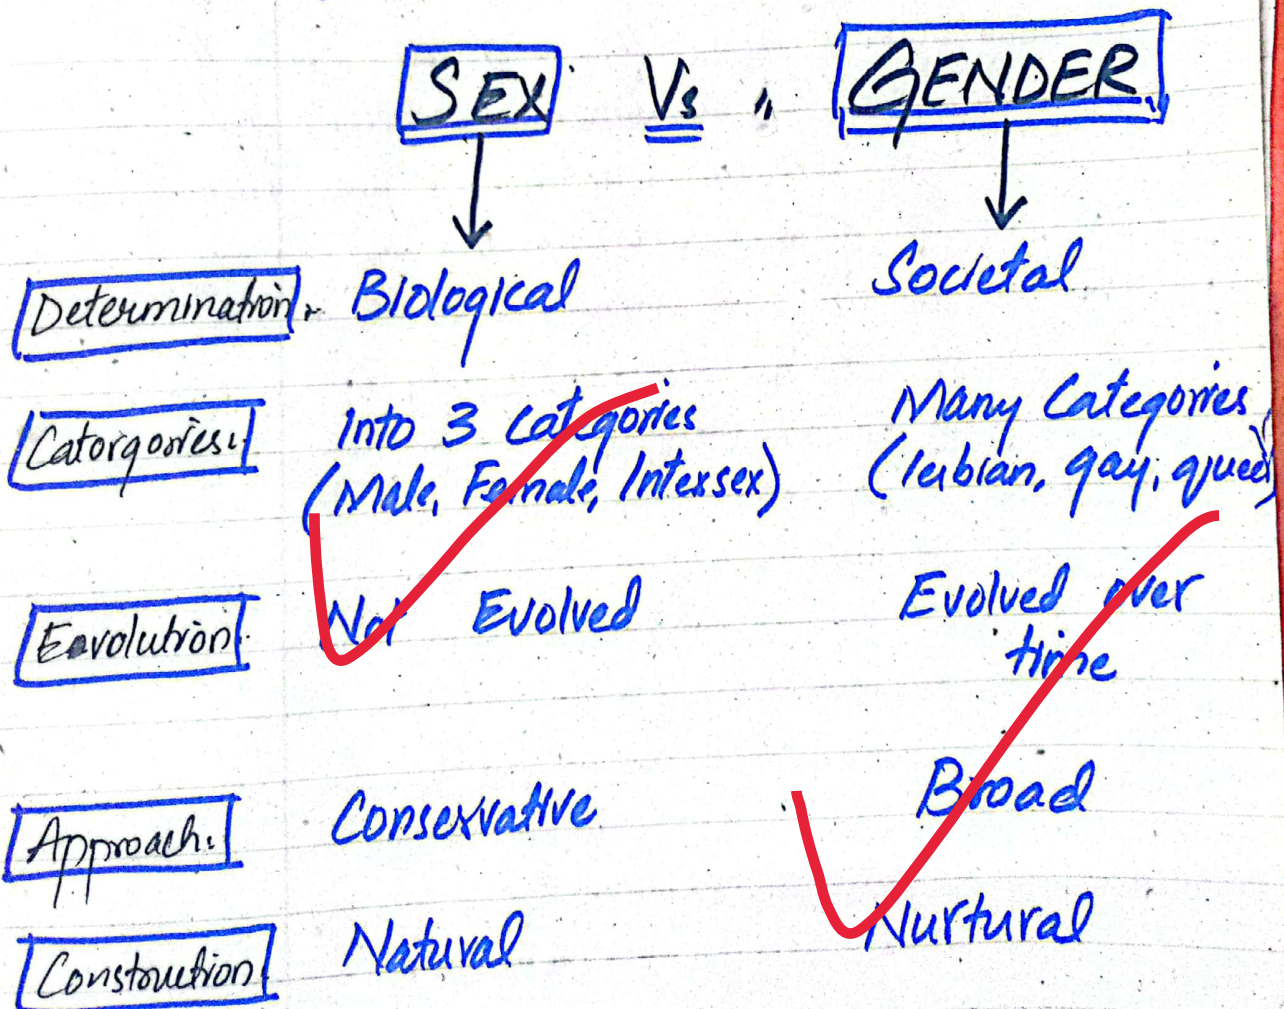 SEX Vs " GENDER
Determination. Biological Societal
Catorgories: into 3 categories Many Categories
(Male, Female, Intersex) (lesbian, gay, queer)
Eavolution. Not Evolved Evolved over
time
Approach. Conservative Broad
Construction Natural Nurtural